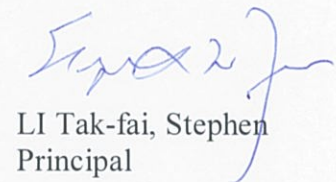 LI Tak-fai, Stephen
Principal